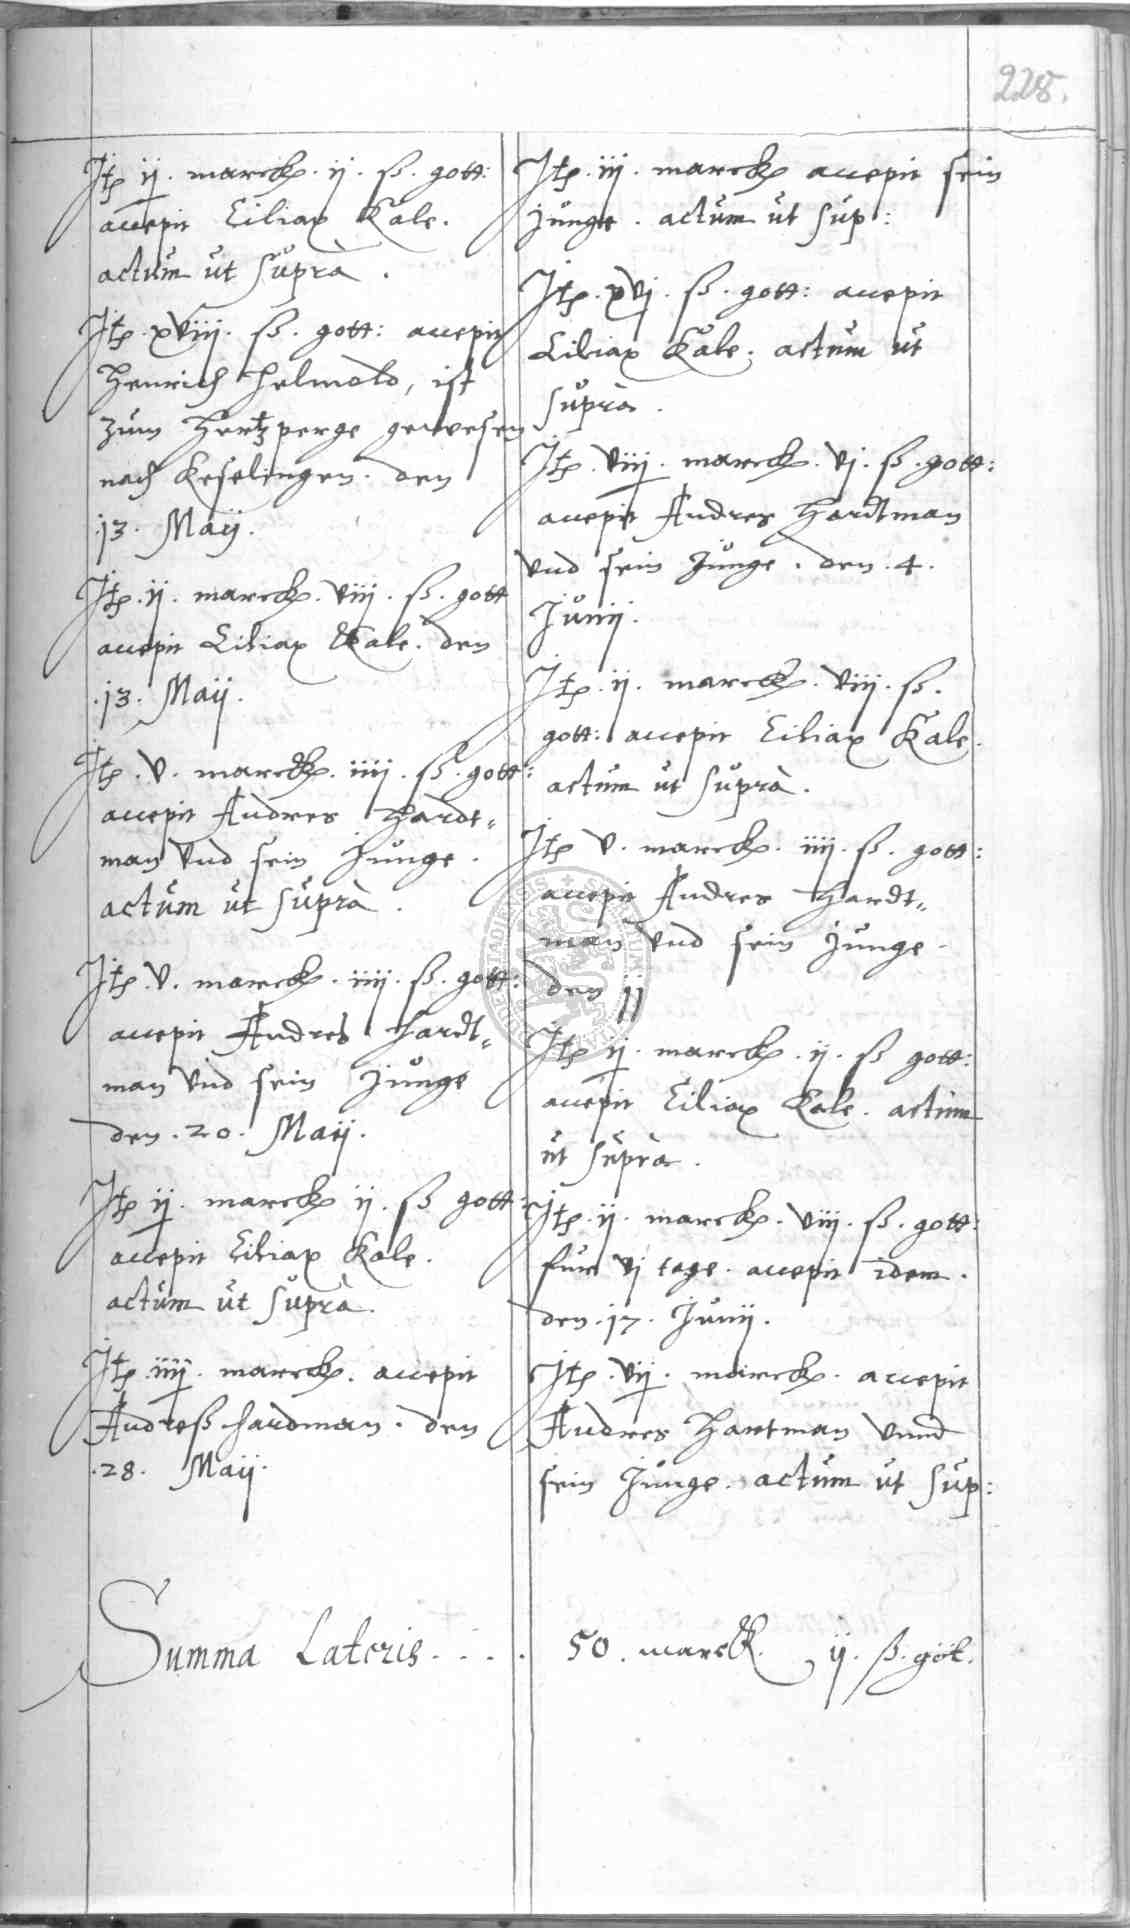 228.
Itē ij. marck. ij. ß. gott:
accepit Ciliax Kale.
actum ut suprà.
Itē. xviij. ß. gott: accepit
Henrich Helmold, ist
zum Hertzperge gewesen
nach Keselingen. den
.13. Maij.
Itē. ij. marck. viij. ß. gott
accepit Ciliax Kale. den
.13. Maij.
Itē. v. marck. iiij. ß. gott:
accepit Andres Hardt„
man vnd sein Junge.
actum ut suprà.
Itē. v. marck. iiij. ß. gott:
accepit Andres Hardt„
man vnd sein Junge
den. 20. Maij.
Itē ij. marck ij. ß gott:
accepit Ciliax Kale.
actum ut suprà.
Itē. iiij. marck. accepit
Andreß Hardman. den
.28. Maij.
Itē. iij. marck accepit sein
Junge. actum ut sup:
Itē. xvj. ß. gott: accepit
Ciliax Kale. actum ut
suprà.
Itē. viij. marck. vj. ß. gott:
accepit Andres Hardtman
vnd sein Junge. den. 4.
Junij.
Itē. ij. marck. viij. ß.
gott: accepit Ciliax Kale.
actum ut suprà.
Itē v. marck. iiij. ß. gott:
accepit Andres Hardt„
man vnd sein Junge.
den 11
Itē ij. marck. ij. ß gott:
accepit Ciliax Kale. actum
ut suprà.
Itē. ij. marck. viij. ß. gott:
fur vj tage. accepit idem.
den. 17. Junij.
Itē. vij. marck. accepit
Andres Hartman vnnd
sein Junge. actum ut sup:
Summa Lateris . . . . 50. marck. ij. ß. got.